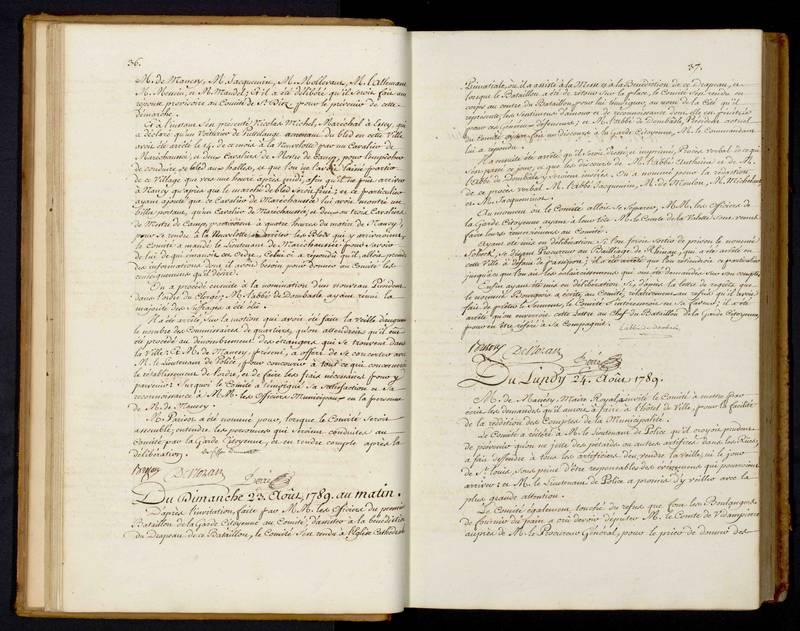 36.
M. de Manesy, M. Jacquemin, M. Mollevaut, M. l'allemant
M. Messein, et M. Mandel; Et il a été délibéré qu'il seroit fait une
réponse provisoire au Comité de St. Diez pour le prévenir de cette
démarche.
Et à l'instant s'est présenté Nicolas Michel, Maréchal à Essey, qui
a déclaré qu'un Voiturier de amenant du bled en cette Ville
avoit été arrêté le 14. de ce mois à la Neuvelotte par un Cavalier de
Maréchaussée, et deux Cavaliers de Mestre de Camp, pour l'empêcher
de conduire ce bled aux halles, et que l'on ne l'avoit laissé partir
de ce Village que vers une heure après midi, afin qu'il ne put arriver
à Nancy qu'après que le marché de bled seroit fini; et ce particulier
ayant ajouté que ce Cavalier de Maréchaussée lui avoit montré un
billet portant, qu'un Cavalier de Maréchaussée, et deux ou trois Cavaliers
de Mestre de Camp, partiroient à quatre heures du matin de Nancy,
pour se rendre à la Neuvelotte, et arrêter les Bleds qui y arriveroient
le Comité a mandé le Lieutenant de Maréchaussée pour savoir
de lui de qui émanoit cet Ordre; Celui ci a répondu qu'il alloit prendre
des informations dont il avoit besoin pour donner au Comité les
renseignemens qu'il désire.
On a procédé ensuite à la nomination d'un nouveau Président
dans l'ordre du Clergé; M. l'abbé de Dombasle ayant réuni la
majorité des Suffrages a été élu.
Il a été arrêté, sur la motion qui avoit été faite la veille d'augmenter
le nombre des Commissaires de quartiers, qu'on attendroit qu'il eut
été procédé au dénombrement des étrangers qui se trouvent dans
la Ville: Et M. de Manesy, présent, a offert de se concerter avec
M. le Lieutenant de Police, pour concourir à tout ce qui concerne
le rétablissement de l'ordre, et de faire les frais nécessaires pour y
parvenir: Sur quoi le Comité a témoigné sa satisfaction et sa
reconnoissance à MM. les Officiers Municipaux en la personne
de M. de Manesy.
M. Parisot a été nommé pour, lorsque le Comité seroit
assemblé, entendre les personnes qui seroient conduites au
Comité par la Garde Citoyenne, et en rendre compte après la
délibération.
Du Dimanche 23. Août 1789. au matin.
D'après l'invitation faite par MM. les Officiers du premier
Bataillon de la Garde Citoyenne au Comité, d'assister à la bénédiction
du Drapeau de ce Bataillon, le Comité s'est rendu à l'Eglise Cathédrale
37.
Primatiale, où il a assisté à la Messe et à la Bénédiction de ce Drapeau, et
lorsque le Bataillon a été de retour sur la place, le Comité s'est rendu en
corps au centre du Bataillon, pour lui témoigner, au nom de la Cité qu'il
représente, les sentimens d'amour et de reconnoissance dont elle est pénétrée
pour ces généreux défenseurs; et M. l'Abbé de Dombasle, Président actuel
du Comité ayant fait un discours à la Garde Citoyenne, M. le Commandant
lui a répondu.
Il a ensuite été arrêté qu'il seroit dressé, et imprimé, Procès verbal de ce qui
s'est passé ce jour, et que les discours de M. l'abbé Anthoine et de M.
l'abbé de Dombasle y seroient insérés. On a nommé pour la rédaction
de ce procès verbal M. l'Abbé Jacquemin, M. de Moulon, M. Michelant,
et M. Jacqueminot.
Au moment où le Comité alloit se séparer, MM. les Officiers de
la Garde Citoyenne ayant à leur tête M. le Comte de la Valette sont venus
faire leurs remercimens au Comité.
Ayant été mis en délibération si l'on feroit sortir de prison le nommé
Schorck, se disant Procureur au Bailliage de, qui a été arrêté en
cette Ville à défaut de Passeport; il a été arrêté que l'on retiendroit ce particulier
jusqu'à ce que l'on ait les éclaircissemens qui ont été demandés sur son compte.
Enfin ayant été mis en délibération si, d'après la lettre de regrets, que
le nommé Bourgeois a écrite au Comité, relativement au refus qu'il avoit
fait de prêter le Serment, le Comité s'intéresseroit en sa faveur; il a été
arrêté qu'on enverroit cette lettre au Chef du Bataillon de la Garde Citoyenne,
pour en être référé à sa Compagnie.
Du Lundy 24. Août 1789.
M. de Manesy, Maire Royal, a invité le Comité à mettre par
écrit les demandes qu'il auroit à faire à l'hôtel de Ville, pour la facilité
de la reddition des Comptes de la Municipalité.
Le Comité a réitéré à M. le Lieutenant de Police qu'il croyoit prudent
de prévenir qu'on ne jette des pétards ou autres artifices dans les Rues;
à faire défendre à tous les artificiers d'en vendre la veille, ni le jour
de St. Louis, sous peine d'être responsables des événemens qui pourroient
arriver; et M. le Lieutenant de Police a promis d'y veiller avec la
plus grande attention.
Le Comité également touché du refus que font les Boulangers
de fournir du pain a cru devoir députer M. le Comte de Vidampierre
auprès de M. le Procureur Général, pour le prier de donner des